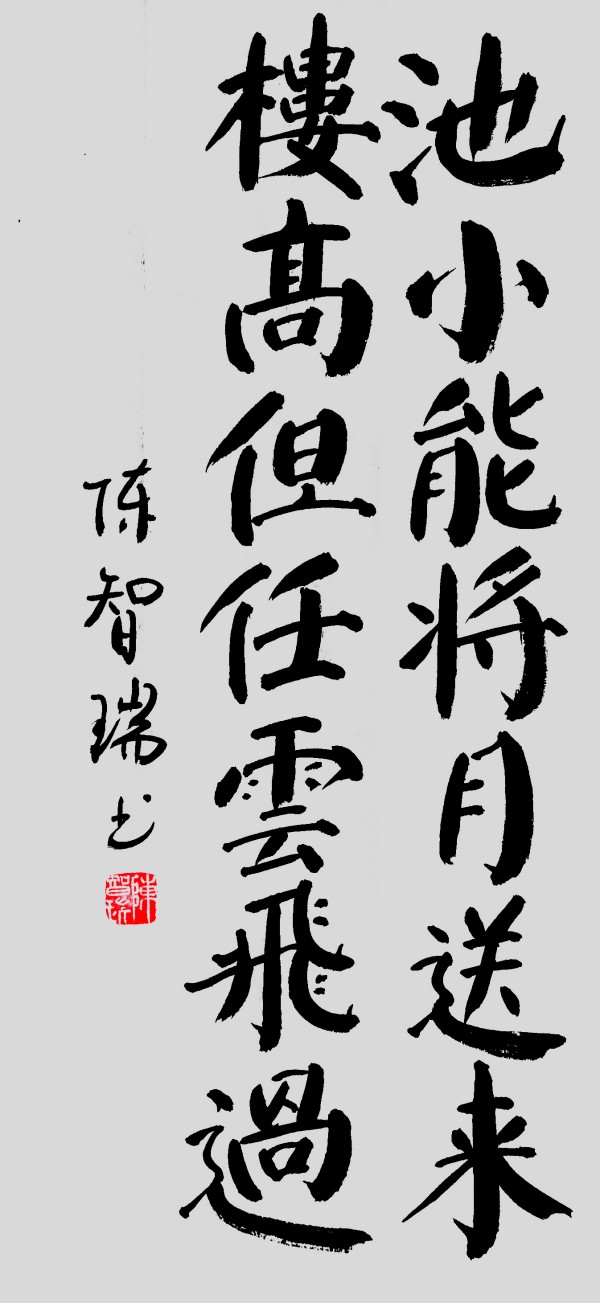 池小能将月送来
樓髙但任雲飛過
陈智瑞书